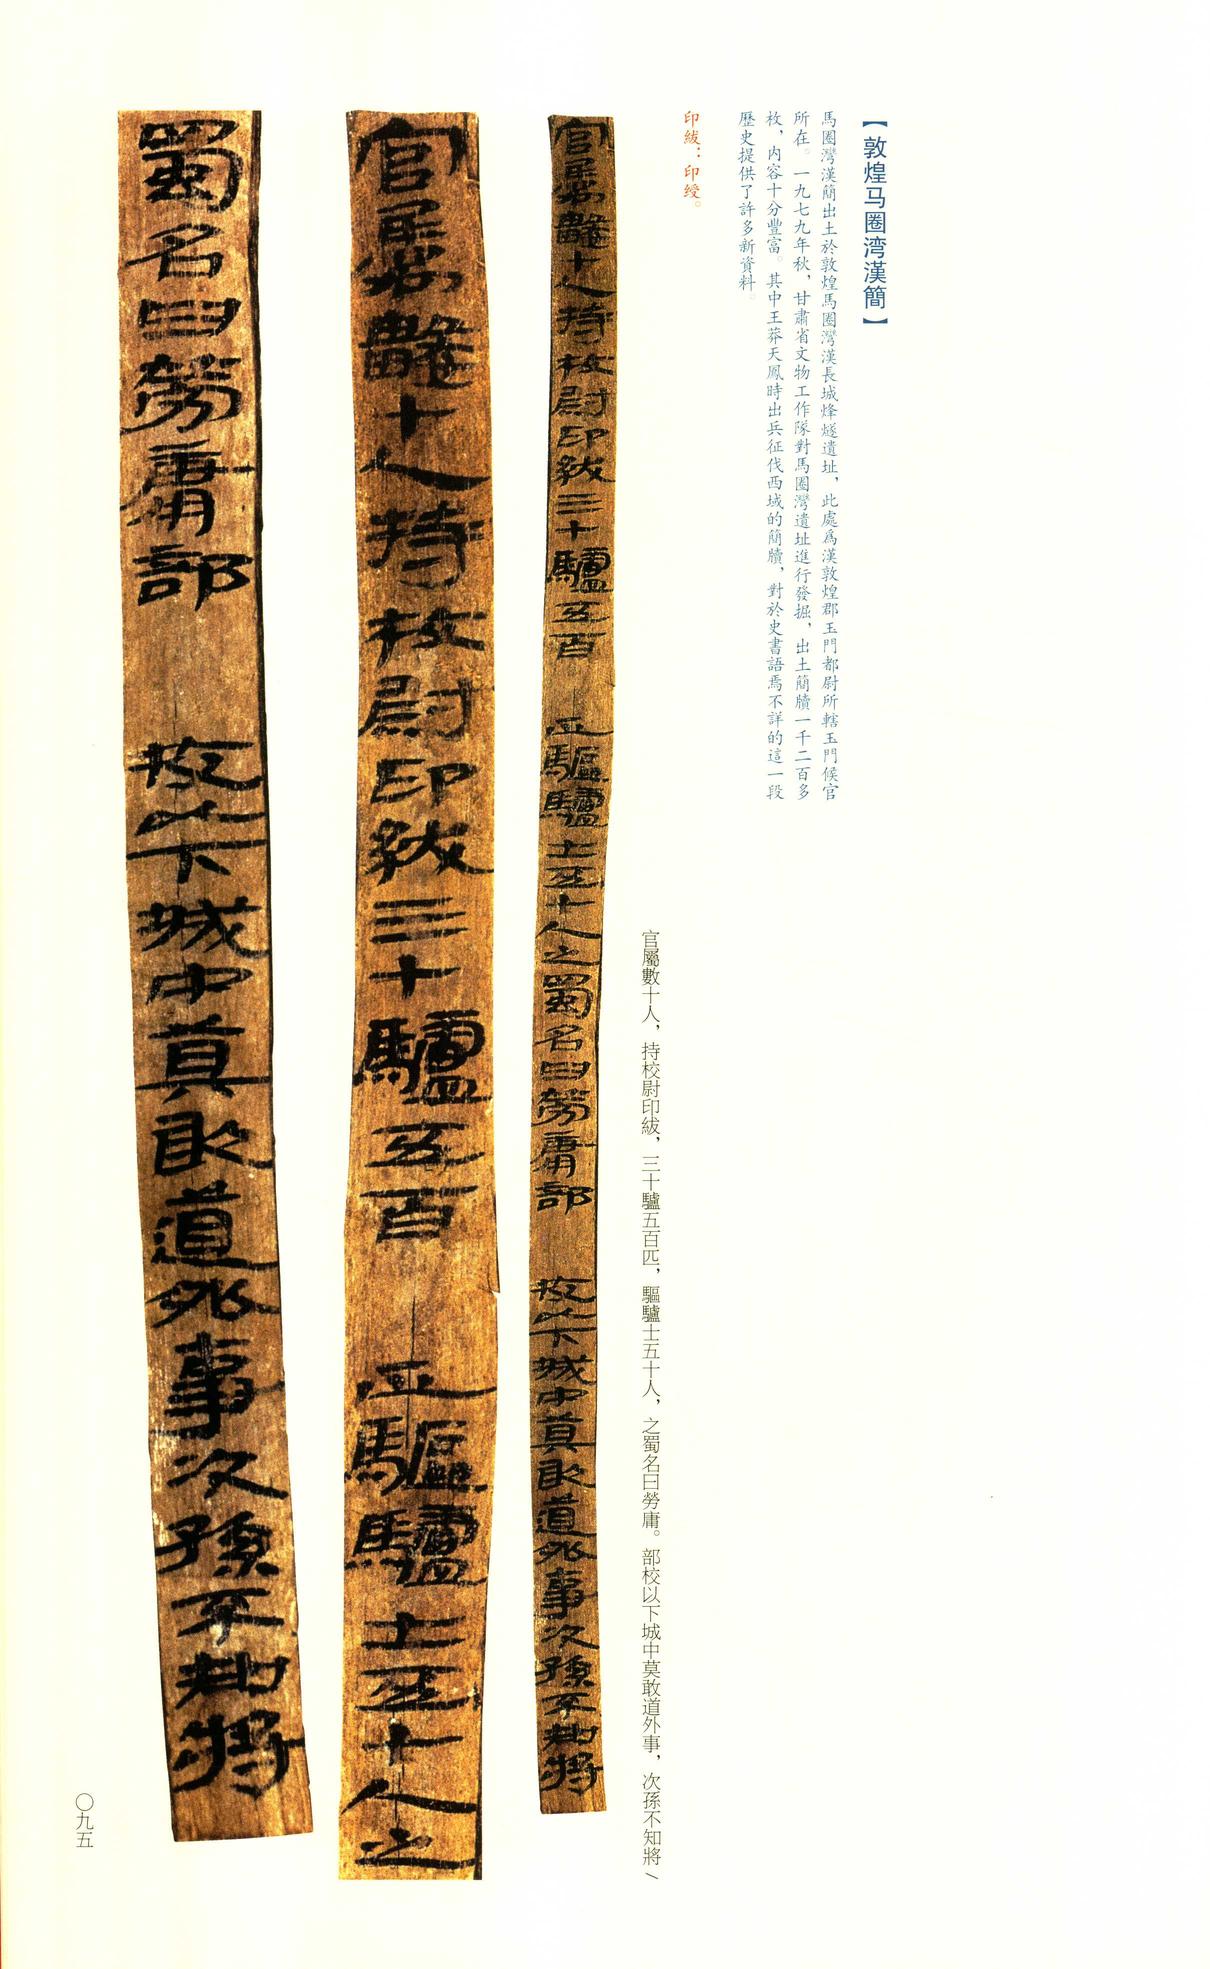 【敦煌马圈湾漢簡】
馬圈灣漢簡出土於敦煌馬圈灣漢長城烽燧遺址，此處爲漢敦煌郡玉門都尉所轄玉門候官
所在。一九七九年秋，甘肅省文物工作隊對馬圈灣遺址進行發掘，出土簡牘一千二百多
枚，内容十分豐富。其中王莽天鳳時出兵征伐西域的簡牘，對於史書語焉不詳的這一段
歷史提供了許多新資料。
印紱：印绶。
官屬數十人，持校尉印紱，三十驢五百匹，驅驢士五十人，之蜀名曰勞庸。部校以下城中莫敢道外事，次孫不知將／
官屬數十人持校尉印紱三十驢五百 匹驅驢士五十人之蜀名曰勞庸部 校以下城中莫敢道外事次孫不知將
官屬數十人持校尉印紱三十驢五百 匹驅驢士五十人之
蜀名曰勞庸部 校以下城中莫敢道外事次孫不知將
〇九五